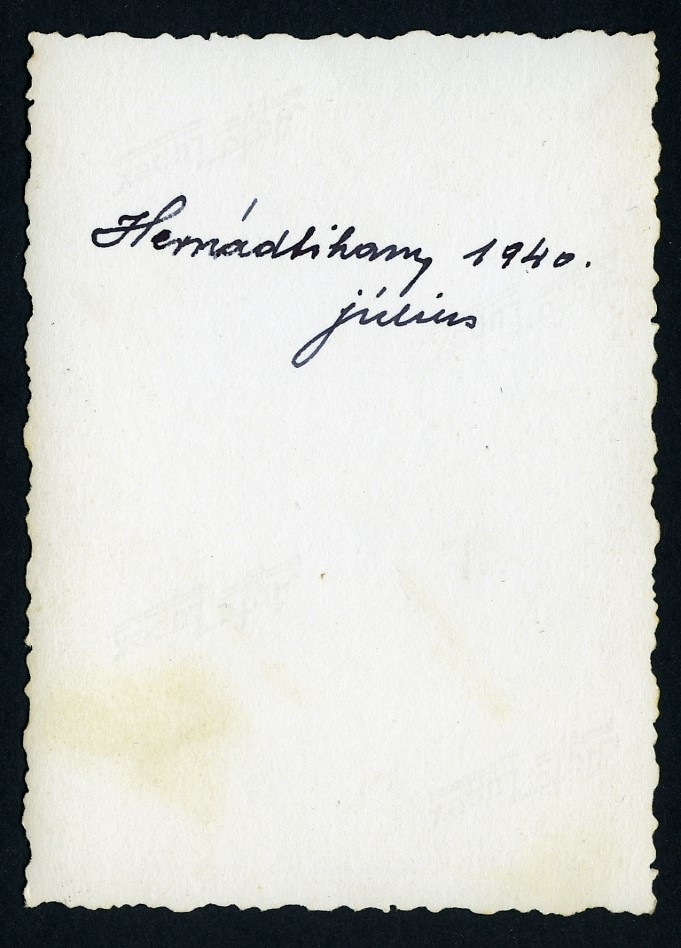 Hernádtihany 1940.
július